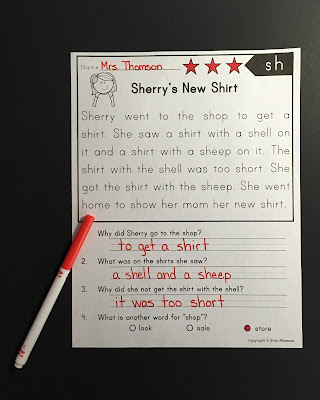 Name Mrs. Thomson
sh
Sherry's New Shirt
Sherry went to the shop to get a
shirt. She saw a shirt with a shell on
it and a shirt with a sheep on it. The
shirt with the shell was too short. She
got the shirt with the sheep. She went
home to show her mom her new shirt.
Why did Sherry go to the shop?
to get a shirt
2. What was on the shirts she saw?
a shell and a sheep
3. Why did she not get the shirt with the shell?
it was too short
4. What is another word for "shop"?
look sale store
Copyright © Erin Thomson